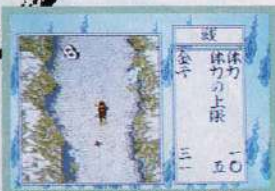 体力 一〇
体力の上限 五
金子 三一